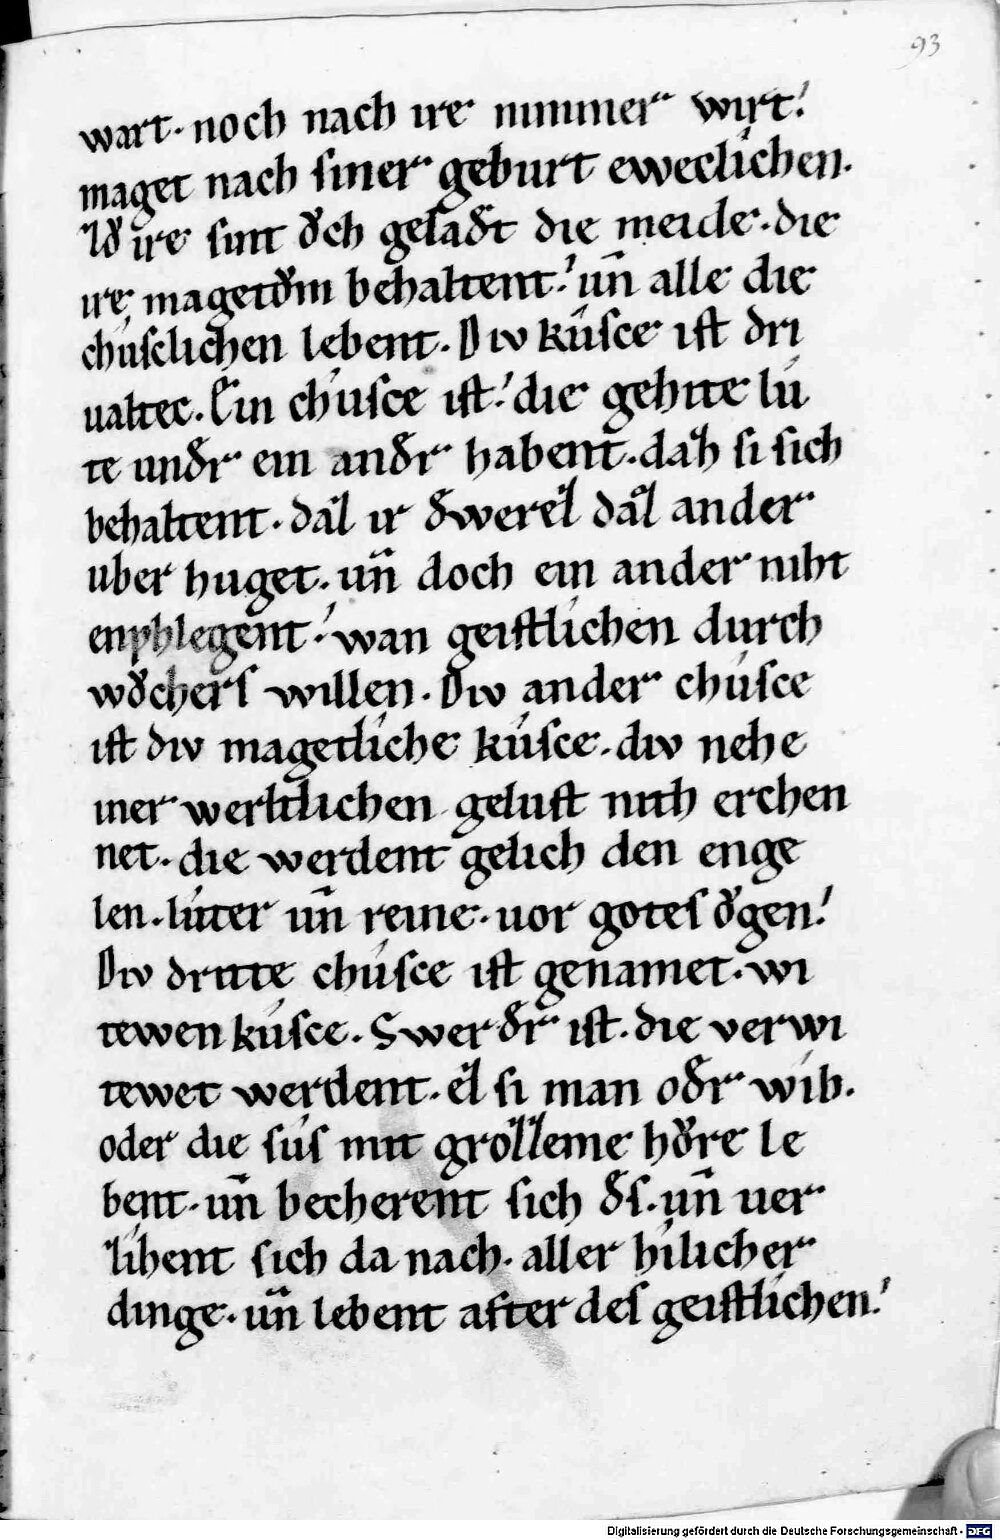 93
wart. noch nach ire nimmer wirt!
maget nach siner geburt eweclichen.
ire sint ǒch gesaǒt die meide. die
ire magetǒm behaltent! uñ alle die
chúslichen lebent. Div kúsce ist dri
ualtec. Ein chúsce ist! die gehite lú
te undr ein andr habent. daz si sich
behaltent. daz ir ǒwerez daz ander
uber huget. uñ doch ein ander niht
enphlegent! wan geistlichen durch
wǒchers willen. Div ander chúsce
ist div magetliche kúsce. div nehe
iner werltlichen gelust nith erchen
net. die werdent gelich den enge
len. lúter uñ reine. uor gotes ǒgen!
Div dritte chúsce ist genamet. wi
tewen kúsce. Swer dr ist. die verwi
tewet werdent. ez si man odr wib.
oder die sus mit grozzeme hǒre le
bent. uñ becherent sich ds. uñ uer
zihent sich da nach. aller hilicher
dinge. uñ lebent after des geistlichen!
Digitalisierung gefördert durch die Deutsche Forschungsgemeinschaft - DFG